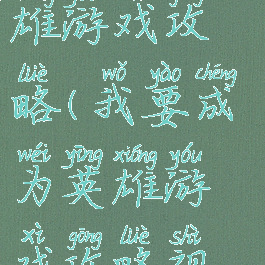 雄游戏攻
lüè wǒ yào chéng
略(我要成
wéi yīng xióng yóu
为英雄游
xì gōng lüè shì
戏攻略视